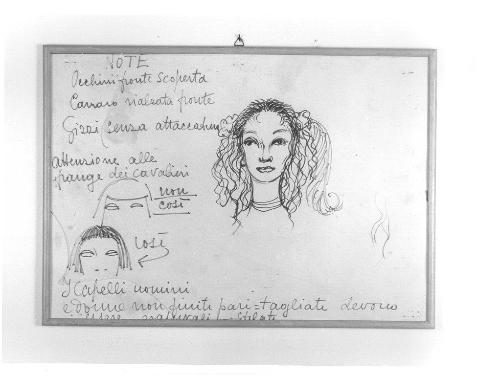 NOTE
Occhini fronte scoperta
Canaro rialzata fronte
Girosi (senza
attenzione alle
frange dei cavalieri
non
così
così
I Capelli uomini
e donne non finiti pari = tagliati devono
essere naturali - sfilati